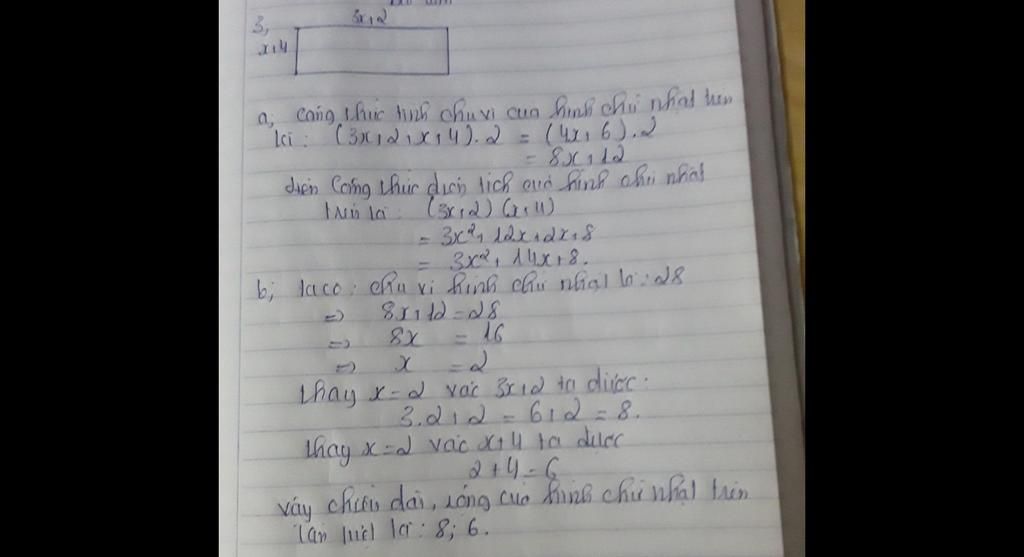 3,
3x+2
x+4
a, Công thức tính chu vi của hình chữ nhật trên
là : (3x+2+x+4).2 = (4x+6).2
= 8x+12
diện Công thức diện tích của hình chữ nhật
trên là : (3x+2)(x+4)
= 3x²+12x+2x+8
= 3x²+14x+8.
b, ta có : chu vi hình chữ nhật là : 28
=> 8x+12=28
=> 8x = 16
=> x = 2
Thay x=2 vào 3x+2 ta được :
3.2+2 = 6+2 = 8.
Thay x=2 vào x+4 ta được
2+4=6
Vậy chiều dài, rộng của hình chữ nhật trên
lần lượt là : 8; 6.